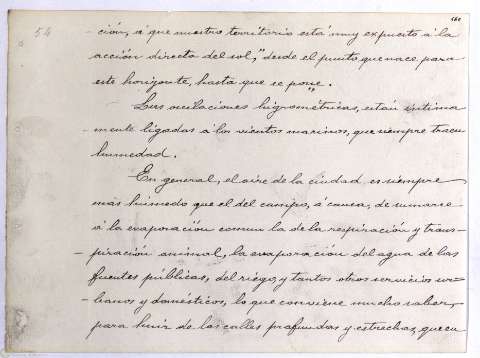 54
ción, á que nuestro territorio está muy expuesto á la
acción directa del sol, "desde el punto que nace para
este horizonte, hasta que se pone".
Las oscilaciones higrométricas, están intima
mente ligadas á los vientos marinos, que siempre traen
humedad.
En general, el aire de la ciudad es siempre
más húmedo que el del campo, á causa, de sumarse
á la evaporación comun la de la respiración y trans-
piración animal, la evaporación del agua de las
fuentes públicas, del riego, y tantos otros servicios ur-
banos y domésticos, lo que conviene mucho saber,
para huir de las calles profundas y estrechas, que en